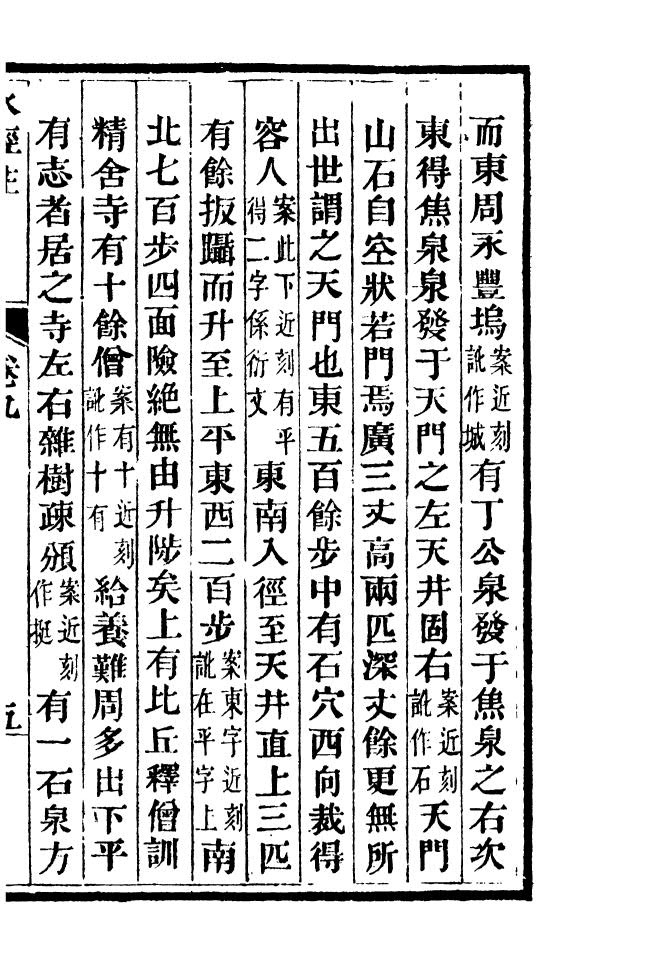 而東周永豐塢案近刻訛作城有丁公泉發于焦泉之右次
東得焦泉泉發于天門之左天井固右案近刻訛作石天門
山石自空狀若門焉廣三丈高兩匹深丈餘更無所
出世謂之天門也東五百餘步中有石穴西向裁得
容人案此下近刻有平得二字係衍文東南入徑至天井直上三匹
有餘扳躡而升至上平東西二百步案東字近刻訛在平字上南
北七百步四面險絶無由升陟矣上有比丘釋僧訓
精舍寺有十餘僧案有十近刻訛作十有給養難周多出下平
有志者居之寺左右雜樹疎頒案近刻作挺有一石泉方
水經注 卷九 五